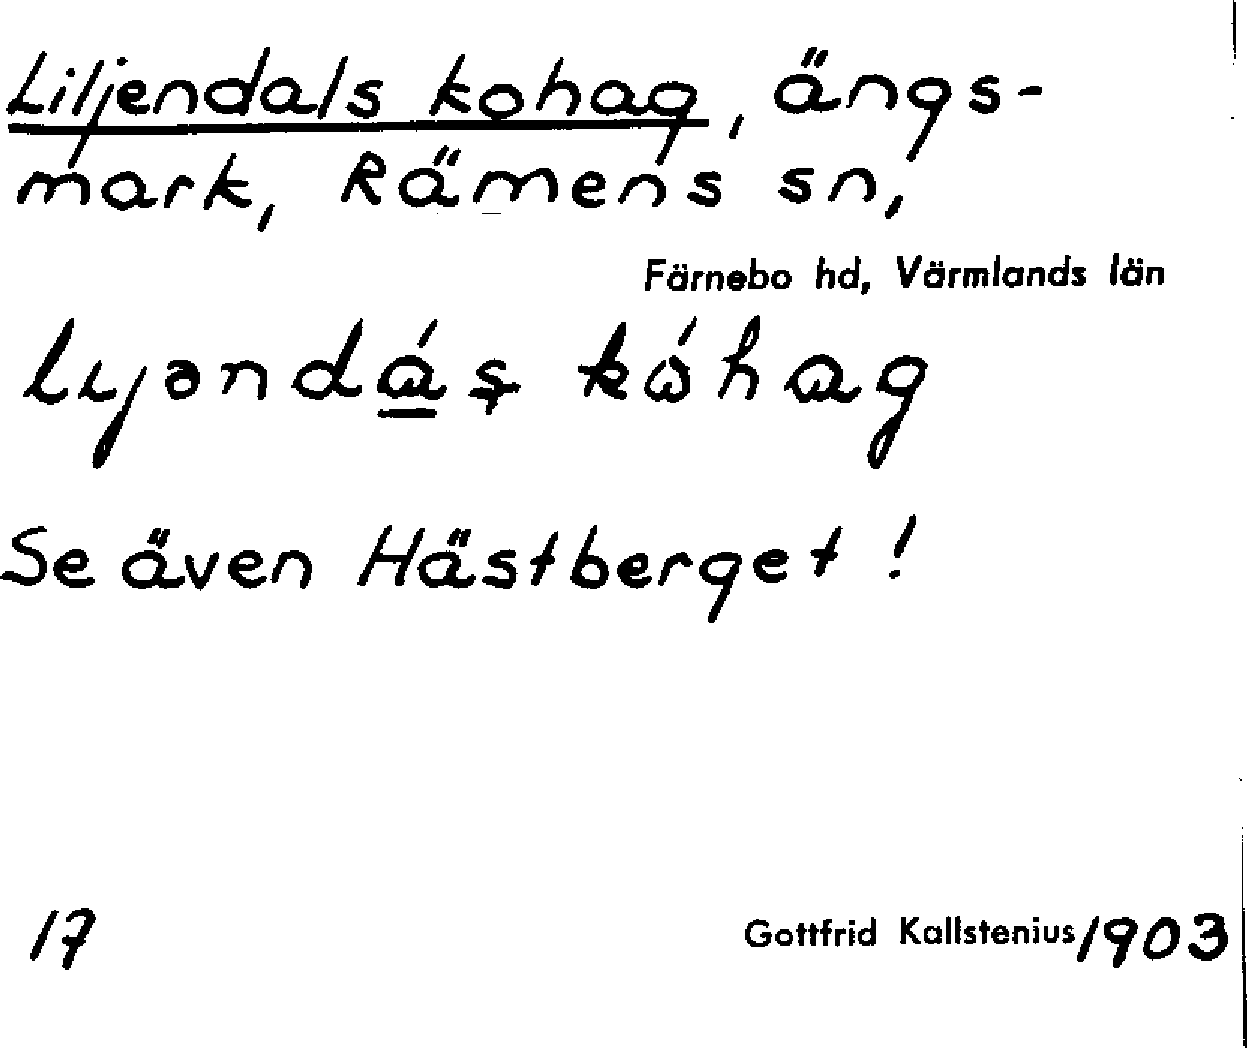 Liljendals kohag, ängs-
mark, Rämens sn,
Färnebo hd, Värmlands län
Se även Hästberget !
17
Gottfrid Kallstenius 1903